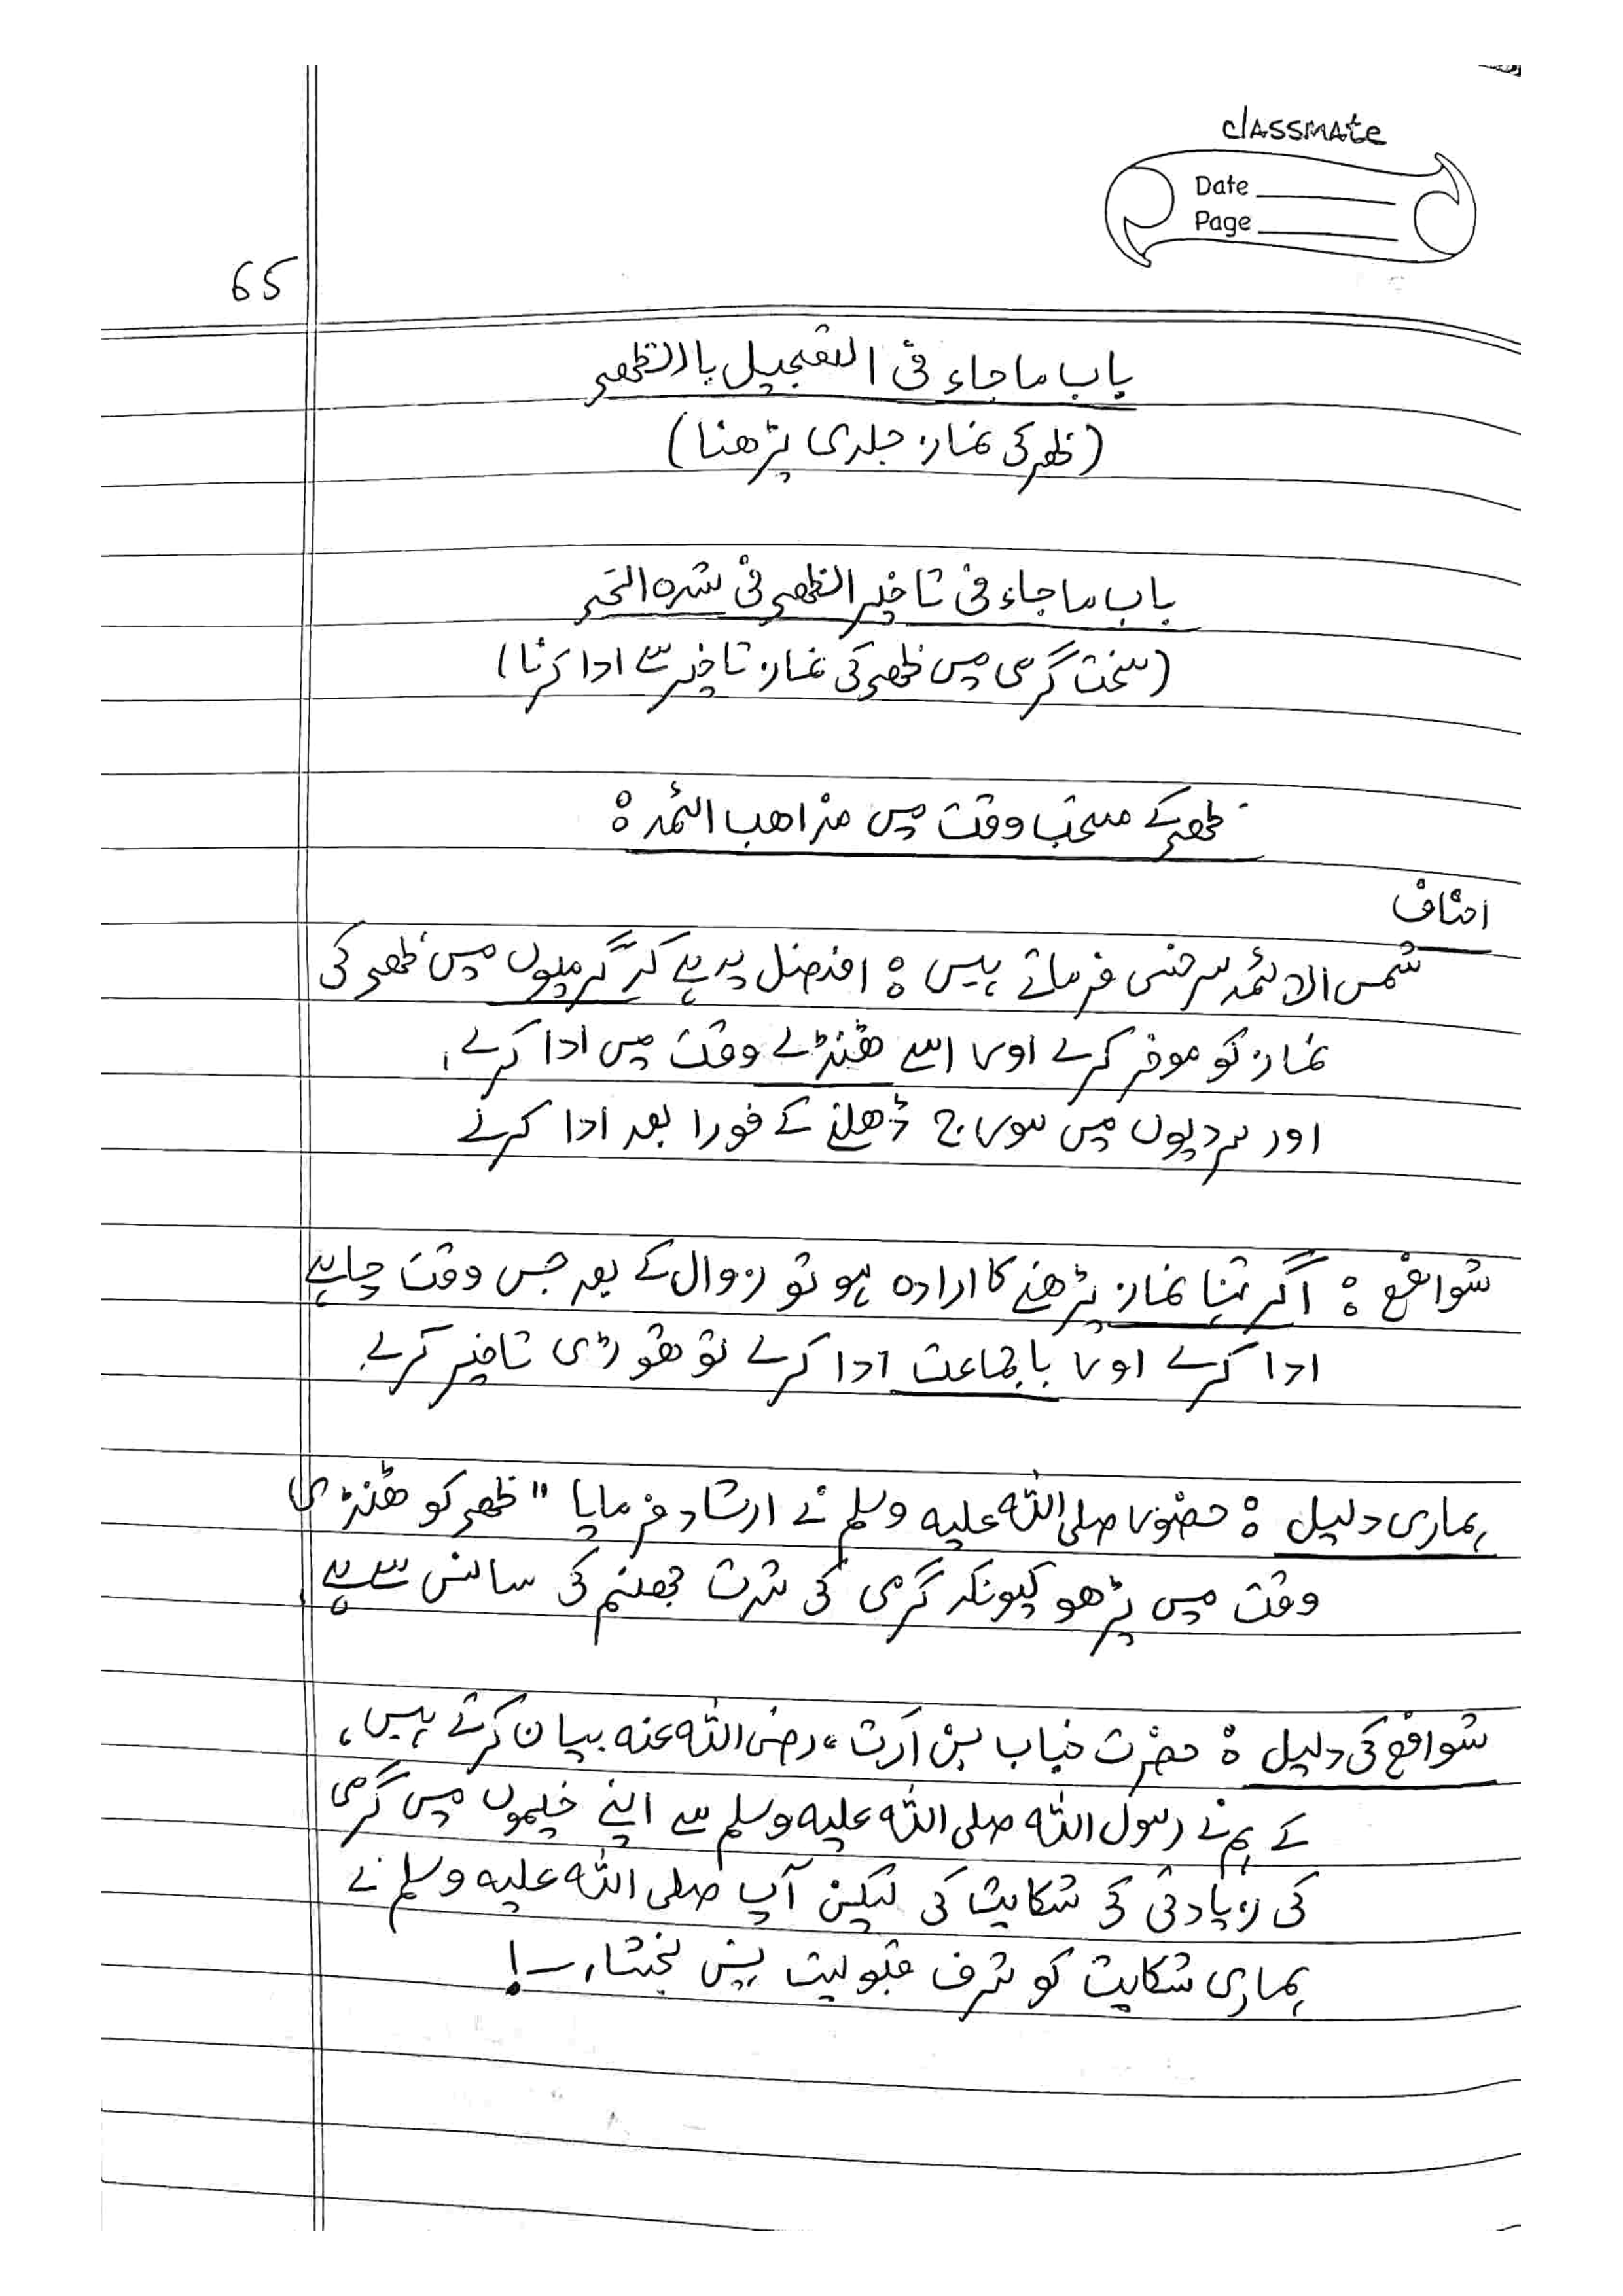 classmate
Date
Page
65
باب ما جاء فی التعجیل بالظھر
(ظہر کی نماز جلدی پڑھنا)
باب ما جاء فی تاخیر الظھر فی شدہ الحَر
(سخت گرمی میں ظھر کی نماز تاخیر سے ادا کرنا)
ظھر کے مستحب وقت میں مذاھب ائمہ :
احناف
شمس الائمہ سرخسی فرماتے ہیں : افضل یہ ہے کہ گرمیوں میں ظھر کی
نماز کو موخر کرے اور اسے ٹھنڈے وقت میں ادا کرے،
اور سردیوں میں سورج ڈھلنے کے فورا بعد ادا کرے
شوافع : اگر تنہا نماز پڑھنے کا ارادہ ہو تو زوال کے بعد جس وقت چاہے
ادا کرے اور باجماعت ادا کرے تو تھوڑی تاخیر کرے۔
ہماری دلیل : حضور صلی اللہ علیہ وسلم نے ارشاد فرمایا " ظھر کو ٹھنڈی
وقت میں پڑھو کیونکہ گرمی کی شدت جھنم کی سانس سے ہے۔
شوافع کی دلیل : حضرت خباب بن اَرت رضی اللہ عنہ بیان کرتے ہیں،
کے ہم نے رسول اللہ صلی اللہ علیہ وسلم سے اپنے خیموں میں گرمی
کی زیادتی کی شکایت کی لیکن آپ صلی اللہ علیہ وسلم نے
ہماری شکایت کو شرف قبولیت نہیں بخشا۔!